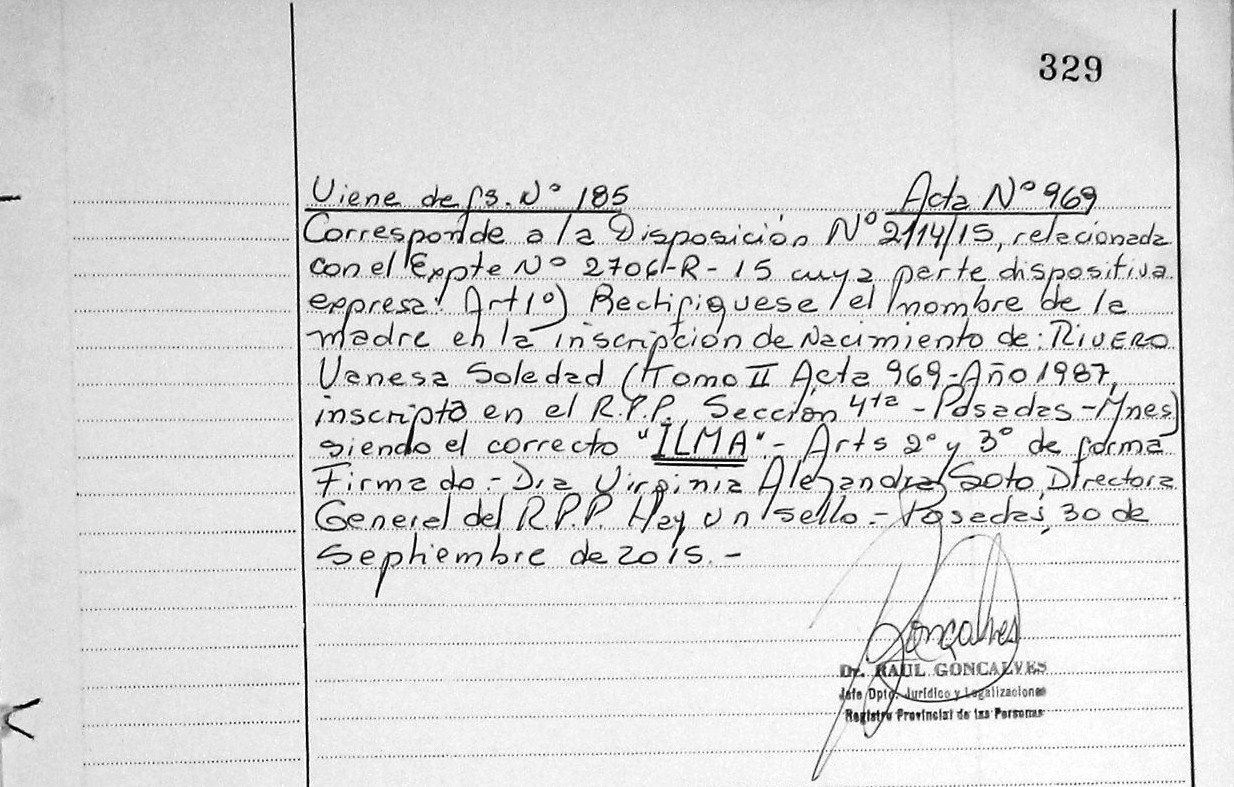 329
Viene de fs. Nº 185 Acta Nº 969
Corresponde a la Disposición Nº 2114/15, relacionada
con el Expte Nº 2706-R-15 cuya parte dispositiva
expresa: Art 1º) Rectifiquese el nombre de la
madre en la inscripción de Nacimiento de: RIVERO
Vanesa Soledad (Tomo II Acta 969-Año 1987,
inscripta en el R.P.P. Sección 4ta - Posadas - Mnes)
siendo el correcto "ILMA".- Arts 2º y 3º de forma
Firmado.- Dra Virginia Alejandra Soto, Directora
General del R.P.P. Hay un sello.- Posadas, 30 de
Septiembre de 2015.-
Goncalves
Dr. RAUL GONCALVES
Jefe Dpto. Jurídico y Legalizaciones
Registro Provincial de las Personas